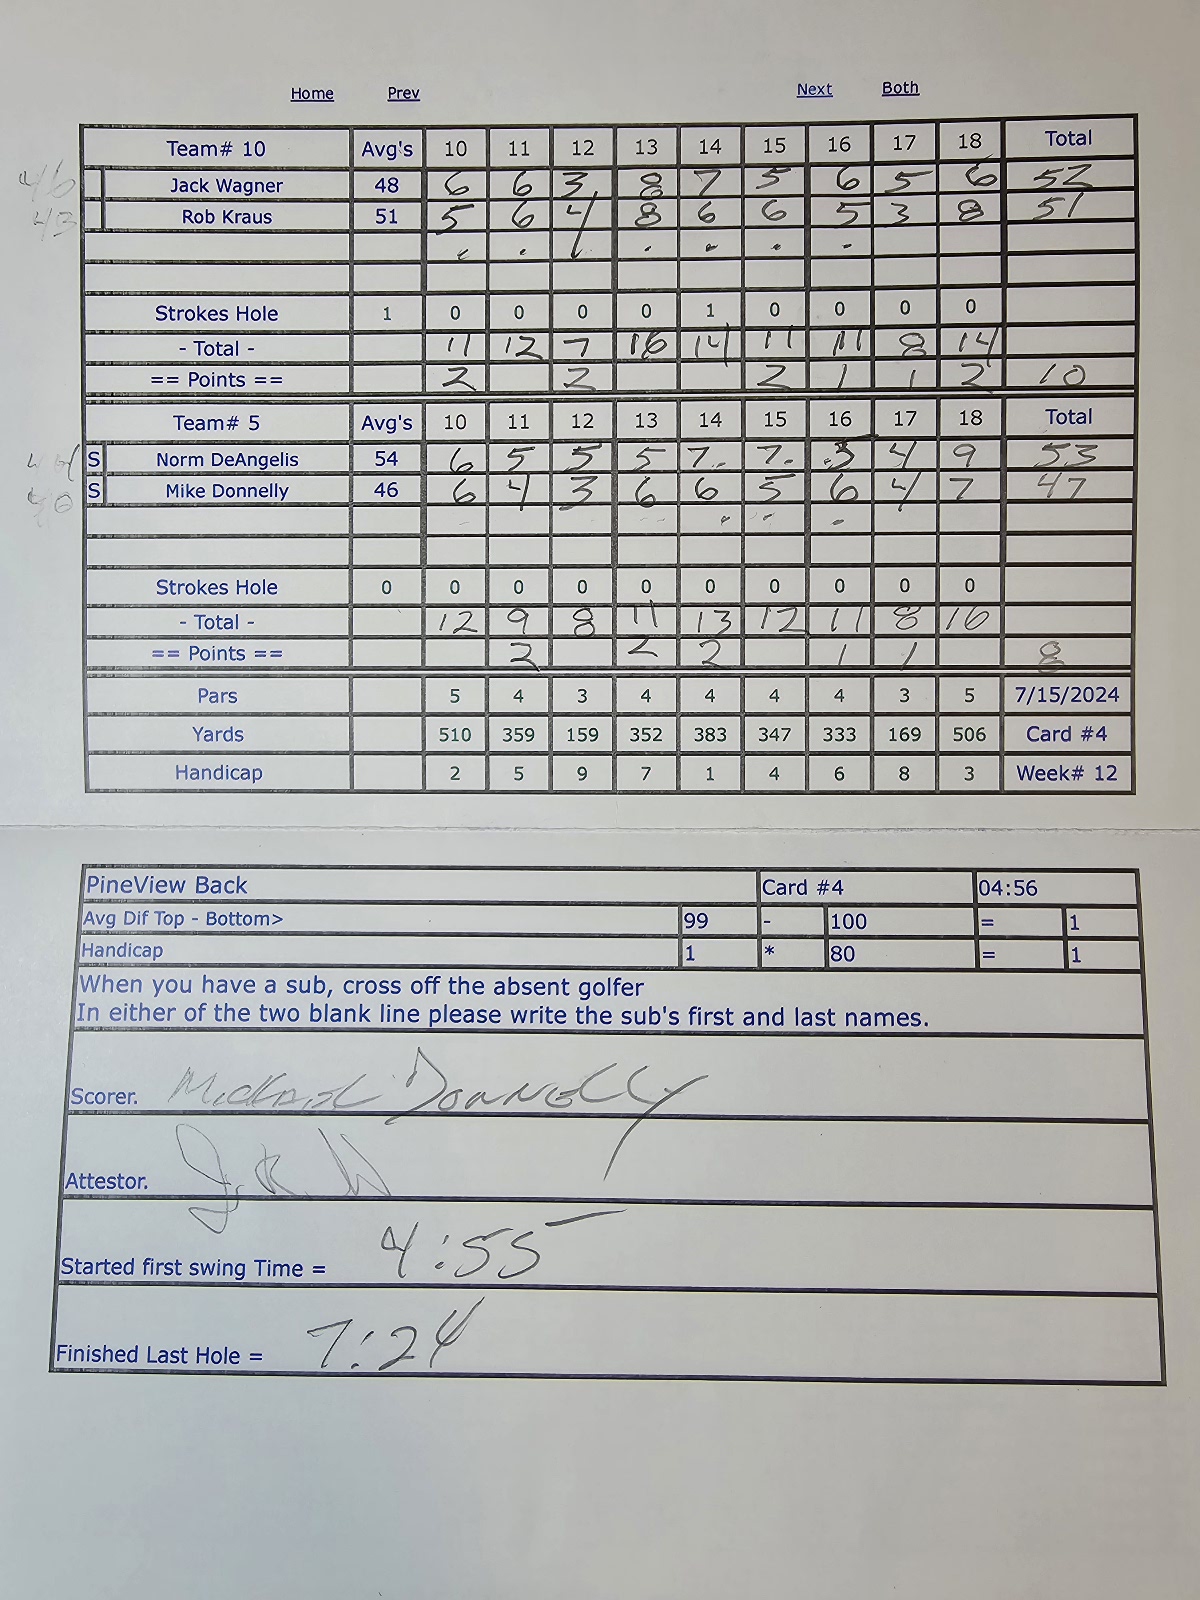 Home Prev Next Both
Team# 10 Avg's 10 11 12 13 14 15 16 17 18 Total
46 Jack Wagner 48 6 6 3 8 7 5 6 5 6 52
43 Rob Kraus 51 5 6 4 8 6 6 5 3 8 51
Strokes Hole 1 0 0 0 0 1 0 0 0 0
- Total - 11 12 7 16 14 11 11 8 14
== Points == 2 2 2 1 1 2 10
Team# 5 Avg's 10 11 12 13 14 15 16 17 18 Total
S Norm DeAngelis 54 6 5 5 5 7 7 5 4 9 53
40 S Mike Donnelly 46 6 4 3 6 6 5 6 4 7 47
Strokes Hole 0 0 0 0 0 0 0 0 0 0
- Total - 12 9 8 11 13 12 11 8 16
== Points == 2 2 2 1 1 8
Pars 5 4 3 4 4 4 4 3 5 7/15/2024
Yards 510 359 159 352 383 347 333 169 506 Card #4
Handicap 2 5 9 7 1 4 6 8 3 Week# 12
PineView Back Card #4 04:56
Avg Dif Top - Bottom> 99 - 100 = 1
Handicap 1 * 80 = 1
When you have a sub, cross off the absent golfer
In either of the two blank line please write the sub's first and last names.
Scorer. Michael Donnelly
Attestor.
Started first swing Time = 4:55
Finished Last Hole = 7:24